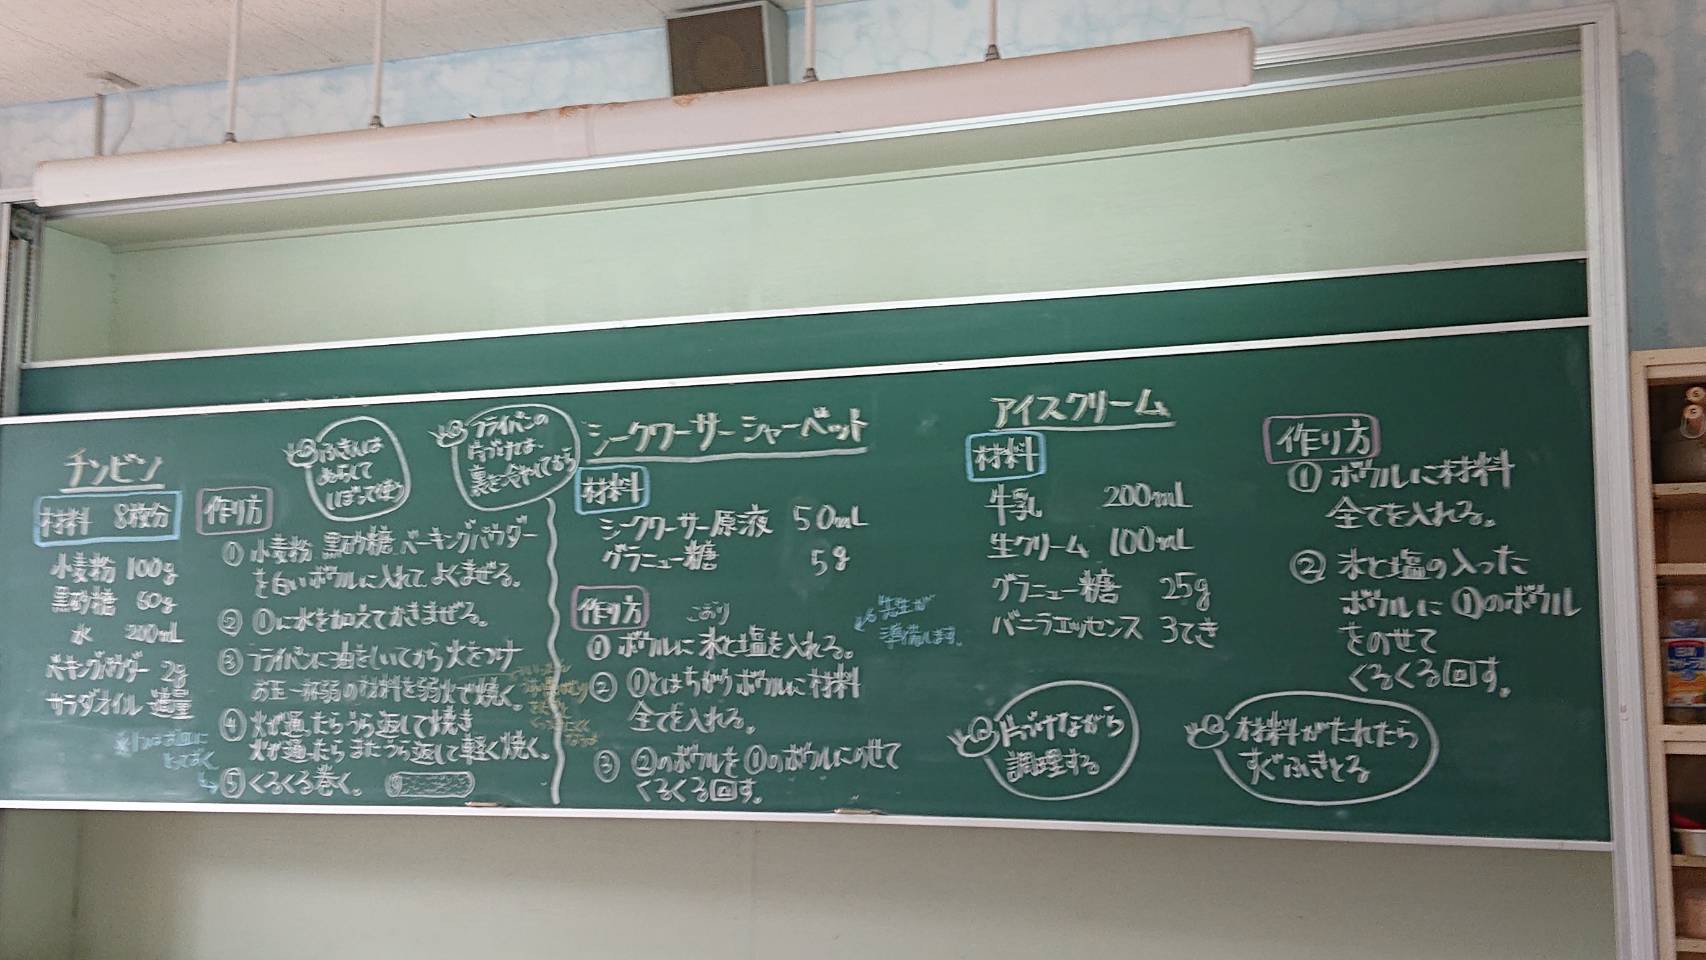 チンビン
材料 8枚分
小麦粉 100g
黒砂糖 60g
水 200mL
ベーキングパウダー 2g
サラダオイル 適量
ふきんは
ぬらして
しぼって使う
フライパンの
片づけは、
裏を冷やしてから
作り方
① 小麦粉 黒砂糖 ベーキングパウダー
を白いボウルに入れてよくまぜる。
② ①に水を加えてかきまぜる。
③ フライパンに油をしいてから火をつけ
お玉一杯弱の材料を弱火で焼く。
④ 火が通ったらうら返して焼き
火が通ったらまたうら返して軽く焼く。
⑤ くるくる巻く。
シークワーサーシャーベット
材料
シークワーサー原液 50mL
グラニュー糖 5g
作り方
こおり
① ボウルに氷と塩を入れる。
先生が
準備します。
② ①とはちがうボウルに材料
全てを入れる。
③ ②のボウルを①のボウルにのせて
くるくる回す。
アイスクリーム
材料
牛乳 200mL
生クリーム 100mL
グラニュー糖 25g
バニラエッセンス 3てき
片づけながら
調理する
作り方
① ボウルに材料
全てを入れる。
② 氷と塩の入った
ボウルに①のボウル
をのせて
くるくる回す。
材料がたれたら
すぐふきとる